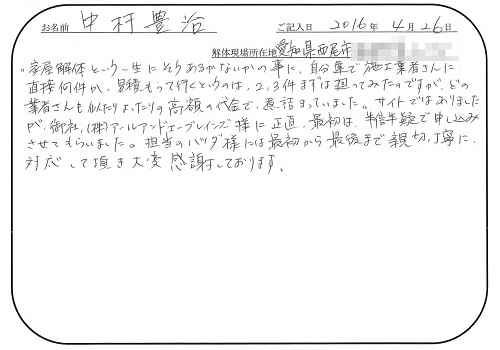 お名前 中村豊治 ご記入日 2016年 4月 26日
解体現場所在地 愛知県西尾市
。家屋解体という一生にそうあるかないかの事に、自分達で施工業者さんに
直接何件か、見積もって行くというのは、2,3件まずは廻ってみたのですが、どの
業者さんも似たりよったりの高額の代金で、悪詰まっていました。サイトではありました
が、御社、(株)アールアンドエーブレインズ様に正直、最初は、半信半疑で申し込み
させてもらいました。担当のハツダ様には最初から最後まで親切、丁寧に、
対応して頂き大変感謝しております。